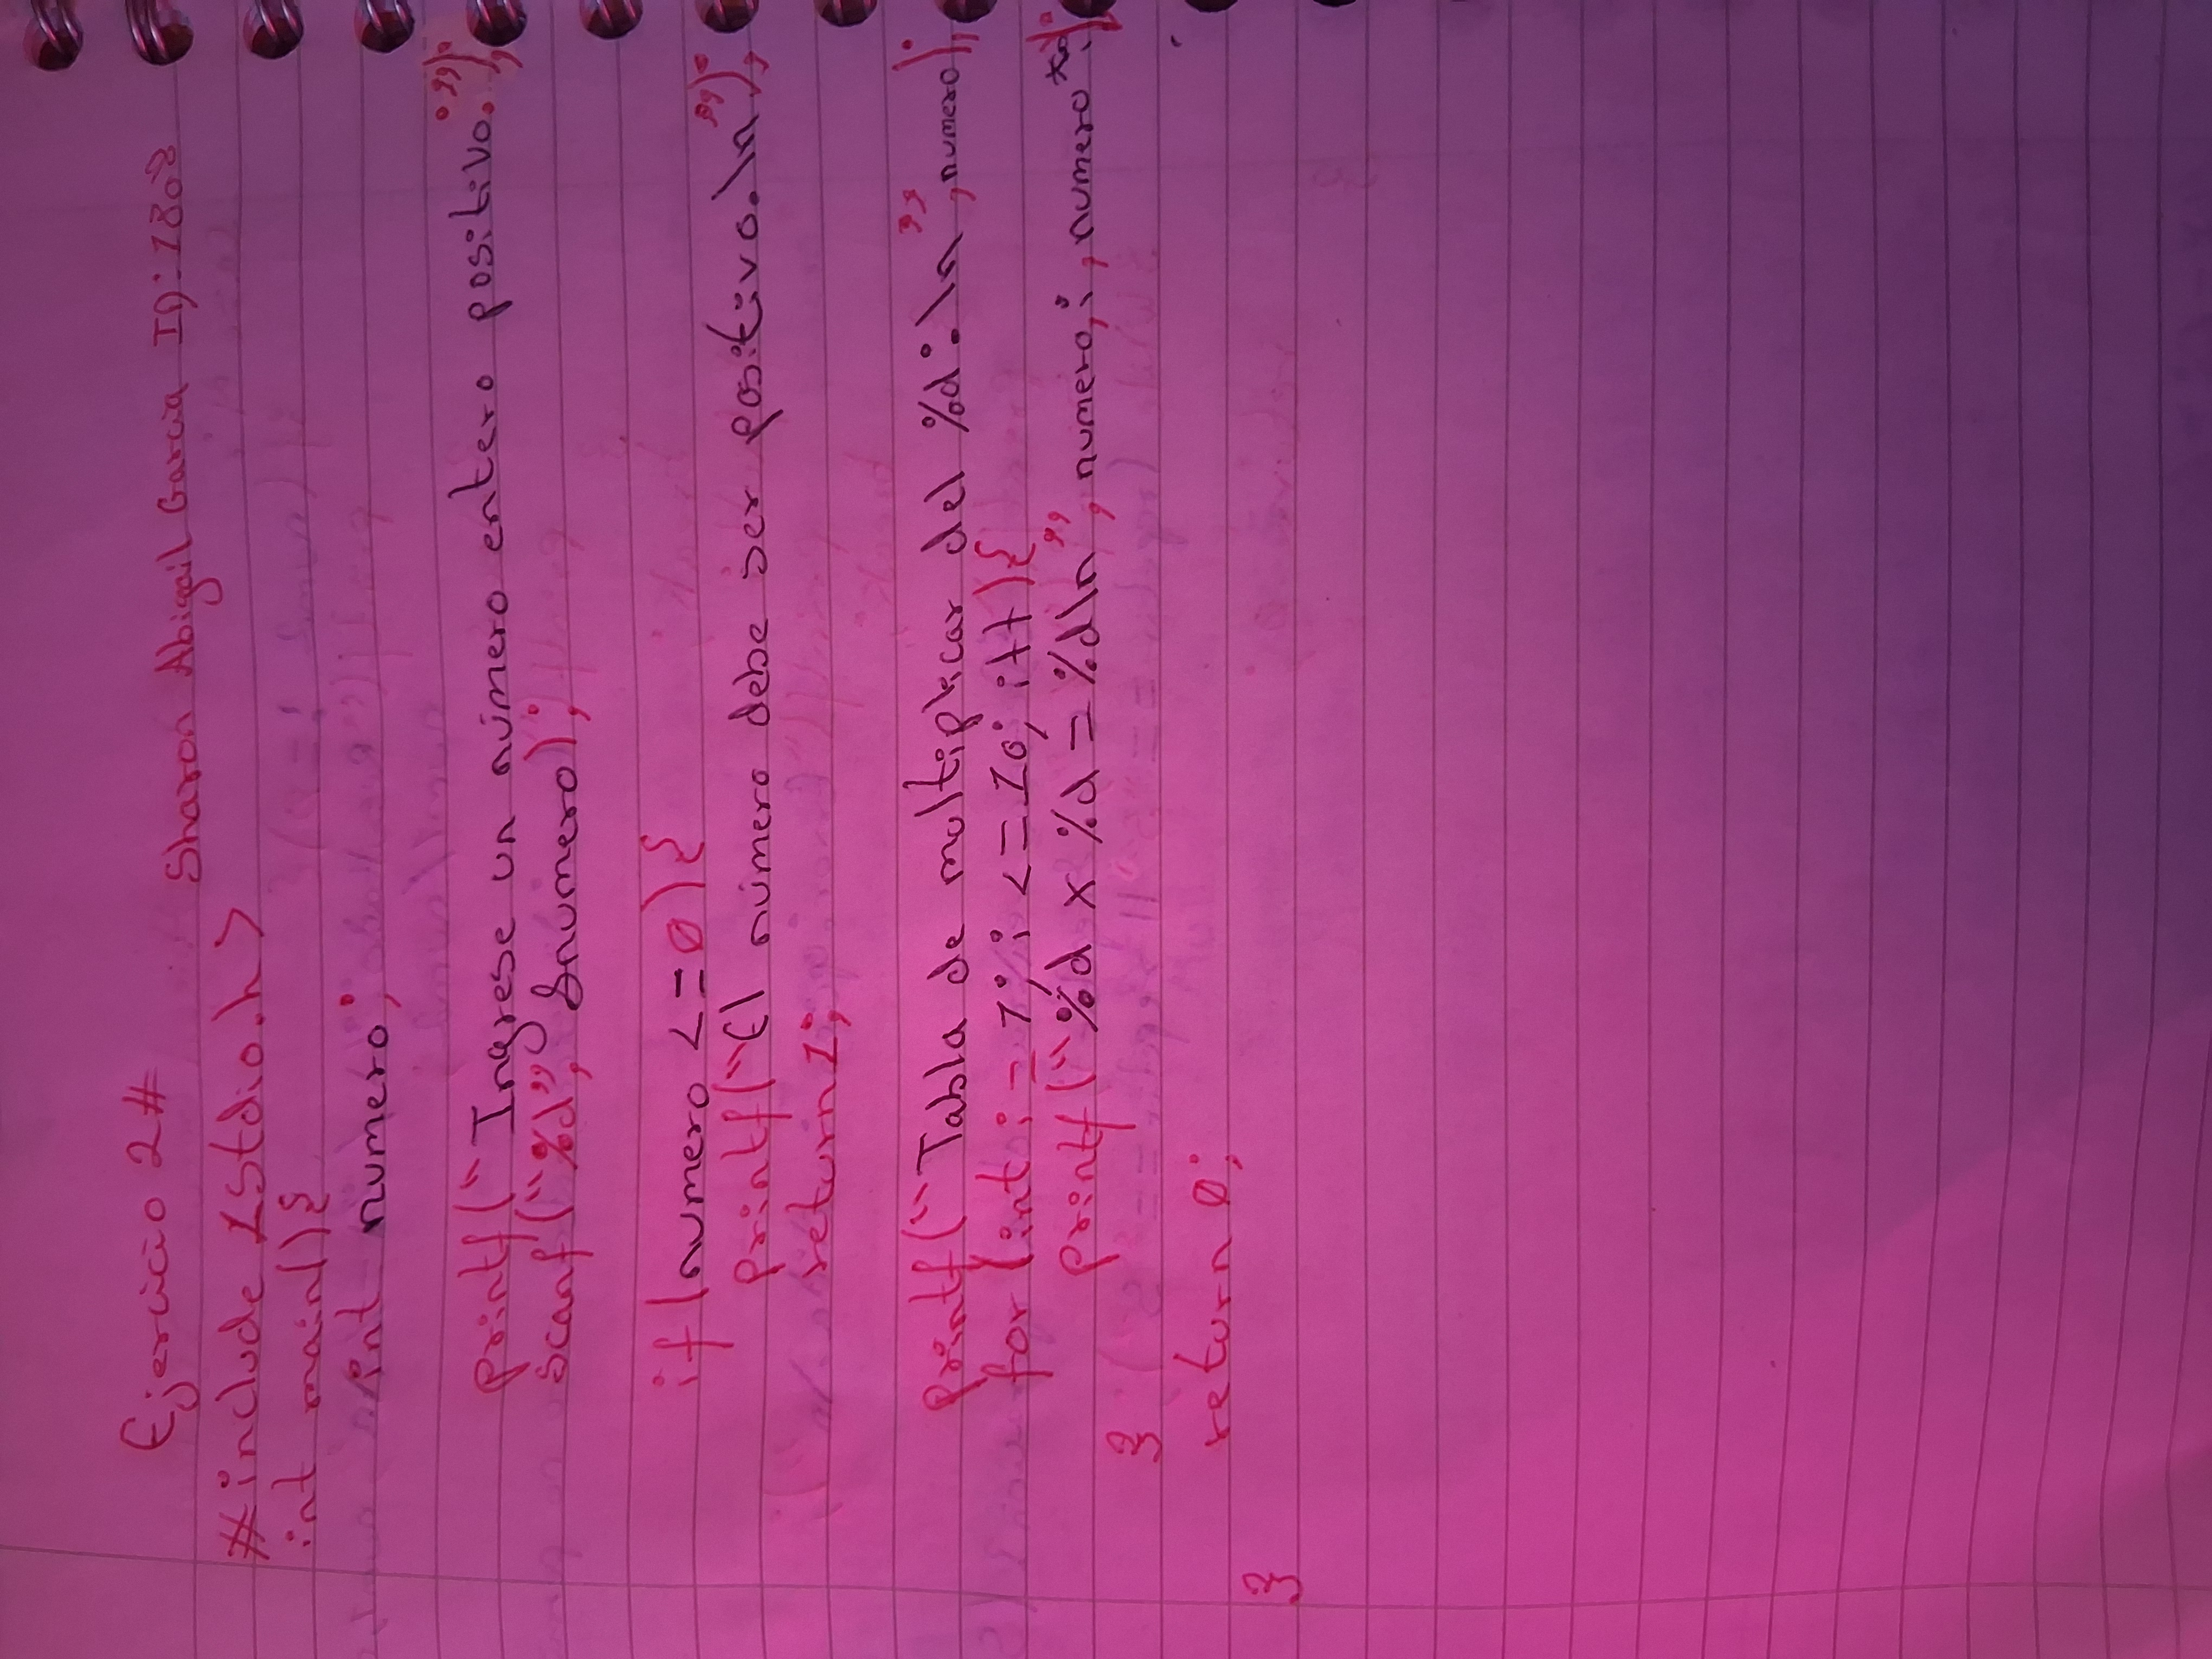 Ejercicio 2#
Sharon Abigail Garcia ID:1808
#include <Stdio.h>
int main(){
int numero;
printf("Ingrese un número entero positivo.");
Scanf("%d", &numero);
if (numero <=0){
printf("El número debe ser positivo.\n");
return 1;
printf("Tabla de multiplicar del %d:\n", numero);
for (int i = 1; i <= 10; i++){
printf("%d x %d = %d\n", numero, i, numero *i);
}
return 0;
}